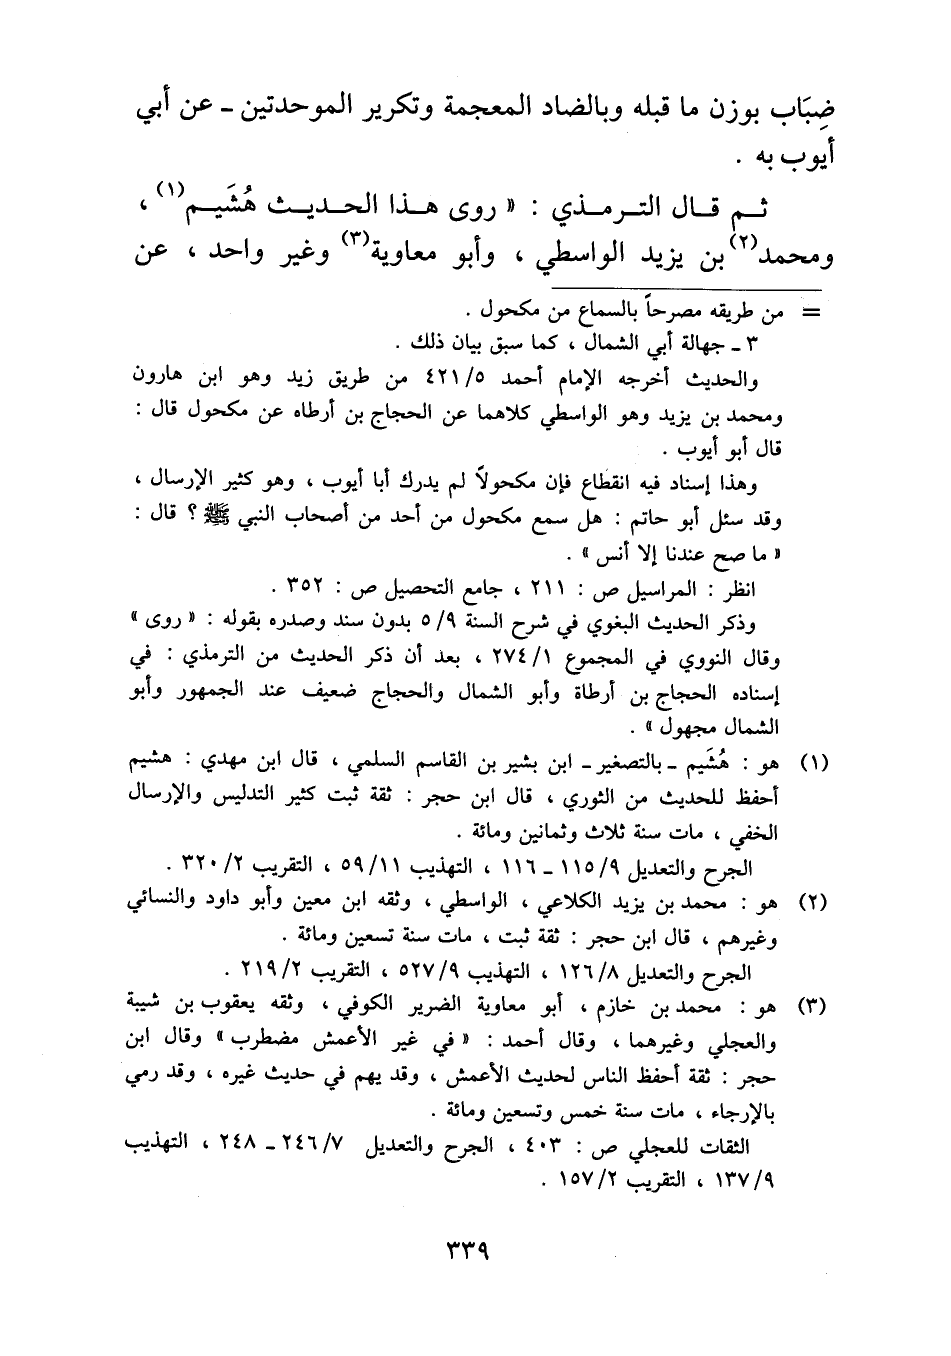 ضِبَاب بوزن ما قبله وبالضاد المعجمة وتكرير الموحدتين ـ عن أبي
أيوب به .
ثــم قــال التــرمــذي : « روى هــذا الحــديــث هُشَيــم(١) ،
ومحمد(٢) بن يزيد الواسطي ، وأبو معاوية(٣) وغير واحد ، عن
= من طريقه مصرحاً بالسماع من مكحول .
٣ ـ جهالة أبي الشمال ، كما سبق بيان ذلك .
والحديث أخرجه الإمام أحمد ٤٢١/٥ من طريق زيد وهو ابن هارون
ومحمد بن يزيد وهو الواسطي كلاهما عن الحجاج بن أرطاه عن مكحول قال :
قال أبو أيوب .
وهذا إسناد فيه انقطاع فإن مكحولاً لم يدرك أبا أيوب ، وهو كثير الإرسال ،
وقد سئل أبو حاتم : هل سمع مكحول من أحد من أصحاب النبي ﷺ ؟ قال :
« ما صح عندنا إلا أنس » .
انظر : المراسيل ص : ٢١١ ، جامع التحصيل ص : ٣٥٢ .
وذكر الحديث البغوي في شرح السنة ٥/٩ بدون سند وصدره بقوله : « روى »
وقال النووي في المجموع ٢٧٤/١ ، بعد أن ذكر الحديث من الترمذي : في
إسناده الحجاج بن أرطاة وأبو الشمال والحجاج ضعيف عند الجمهور وأبو
الشمال مجهول » .
(١) هو : هُشَيم ـ بالتصغير ـ ابن بشير بن القاسم السلمي ، قال ابن مهدي : هشيم
أحفظ للحديث من الثوري ، قال ابن حجر : ثقة ثبت كثير التدليس والإرسال
الخفي ، مات سنة ثلاث وثمانين ومائة .
الجرح والتعديل ١١٥/٩ ـ ١١٦ ، التهذيب ٥٩/١١ ، التقريب ٣٢٠/٢ .
(٢) هو : محمد بن يزيد الكلاعي ، الواسطي ، وثقه ابن معين وأبو داود والنسائي
وغيرهم ، قال ابن حجر : ثقة ثبت ، مات سنة تسعين ومائة .
الجرح والتعديل ١٢٦/٨ ، التهذيب ٥٢٧/٩ ، التقريب ٢١٩/٢ .
(٣) هو : محمد بن خازم ، أبو معاوية الضرير الكوفي ، وثقه يعقوب بن شيبة
والعجلي وغيرهما ، وقال أحمد : « في غير الأعمش مضطرب » وقال ابن
حجر : ثقة أحفظ الناس لحديث الأعمش ، وقد يهم في حديث غيره ، وقد رمي
بالإرجاء ، مات سنة خمس وتسعين ومائة .
الثقات للعجلي ص : ٤٠٣ ، الجرح والتعديل ٢٤٦/٧ ـ ٢٤٨ ، التهذيب
١٣٧/٩ ، التقريب ١٥٧/٢ .
٣٣٩